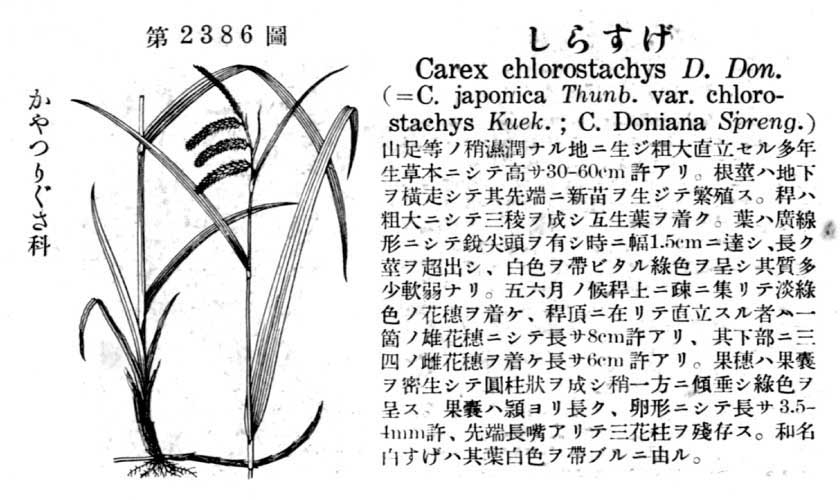 第2386圖
かやつりぐさ科
しらすげ
Carex chlorostachys D. Don.
(=C. japonica Thunb. var. chloro-
stachys Kuek.; C. Doniana Spreng.)
山足等ノ稍濕潤ナル地ニ生ジ粗大直立セル多年
生草本ニシテ高サ30-60cm許アリ。根莖ハ地下
ヲ橫走シテ其先端ニ新苗ヲ生ジテ繁殖ス。稈ハ
粗大ニシテ三稜ヲ成シ互生葉ヲ着ク。葉ハ廣線
形ニシテ銳尖頭ヲ有シ時ニ幅1.5cmニ達シ、長ク
莖ヲ超出シ、白色ヲ帶ビタル綠色ヲ呈シ其質多
少軟弱ナリ。五六月ノ候稈上ニ疎ニ集リテ淡綠
色ノ花穗ヲ着ケ、稈頂ニ在リテ直立スル者ハ一
箇ノ雄花穗ニシテ長サ8cm許アリ、其下部ニ三
四ノ雌花穗ヲ着ケ長サ6cm許アリ。果穗ハ果囊
ヲ密生シテ圓柱狀ヲ成シ稍一方ニ傾垂シ綠色ヲ
呈ス、果囊ハ穎ヨリ長ク、卵形ニシテ長サ3.5-
4mm許、先端長嘴アリテ三花柱ヲ殘存ス。和名
白すげハ其葉白色ヲ帶ブルニ由ル。